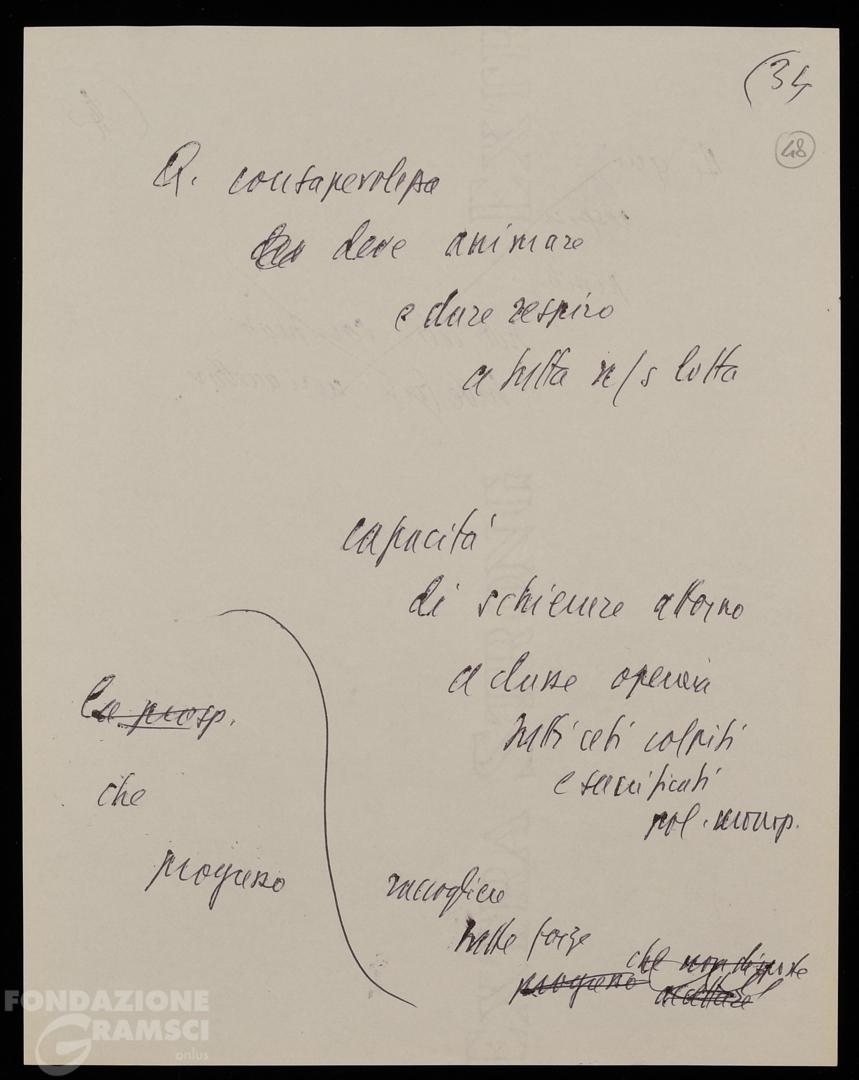 (34
48
Q. consapevolezza
deve animare
e dare respiro
a tutta n/s lotta
capacità
di schierare attorno
a classe operaia
tutti ceti colpiti
e sacrificati
pol. monop.
La prosp.
che
progresso
raccogliere
tutte forze
che non disposte
progresso accettare
FONDAZIONE
GRAMSCI
onlus